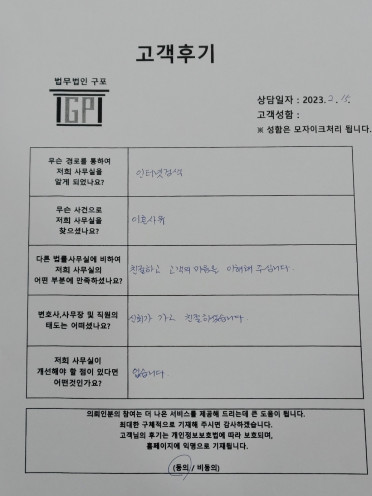 고객후기
법무법인 구포
GP
상담일자 : 2023. 2. 15
고객성함 :
※ 성함은 모자이크처리 됩니다.
무슨 경로를 통하여
저희 사무실을
알게 되었나요?
인터넷검색
무슨 사건으로
저희 사무실을
찾으셨나요?
이혼사유
다른 법률사무실에 비하여
저희 사무실의
어떤 부분에 만족하셨나요?
친절하고 고객의 마음을 이해해 주십니다
변호사,사무장 및 직원의
태도는 어떠셨나요?
신뢰가 가고 친절하셨습니다
저희 사무실이
개선해야 할 점이 있다면
어떤것인가요?
없습니다
의뢰인분의 참여는 더 나은 서비스를 제공해 드리는데 큰 도움이 됩니다.
최대한 구체적으로 기재해 주시면 감사하겠습니다.
고객님의 후기는 개인정보보호법에 따라 보호되며,
홈페이지에 익명으로 기재됩니다.
(동의 / 비동의)